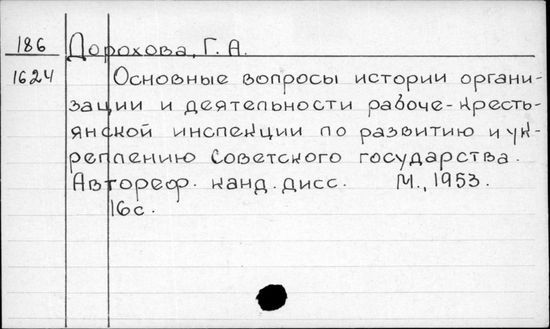 186 Дорохова, Г. А.
1624 Основные вопросы истории органи-
зации и деятельности рабоче-кресть-
янской инспекции по развитию и ук-
реплению Советского государства.
Автореф. канд. дисс. М., 1953.
16с.